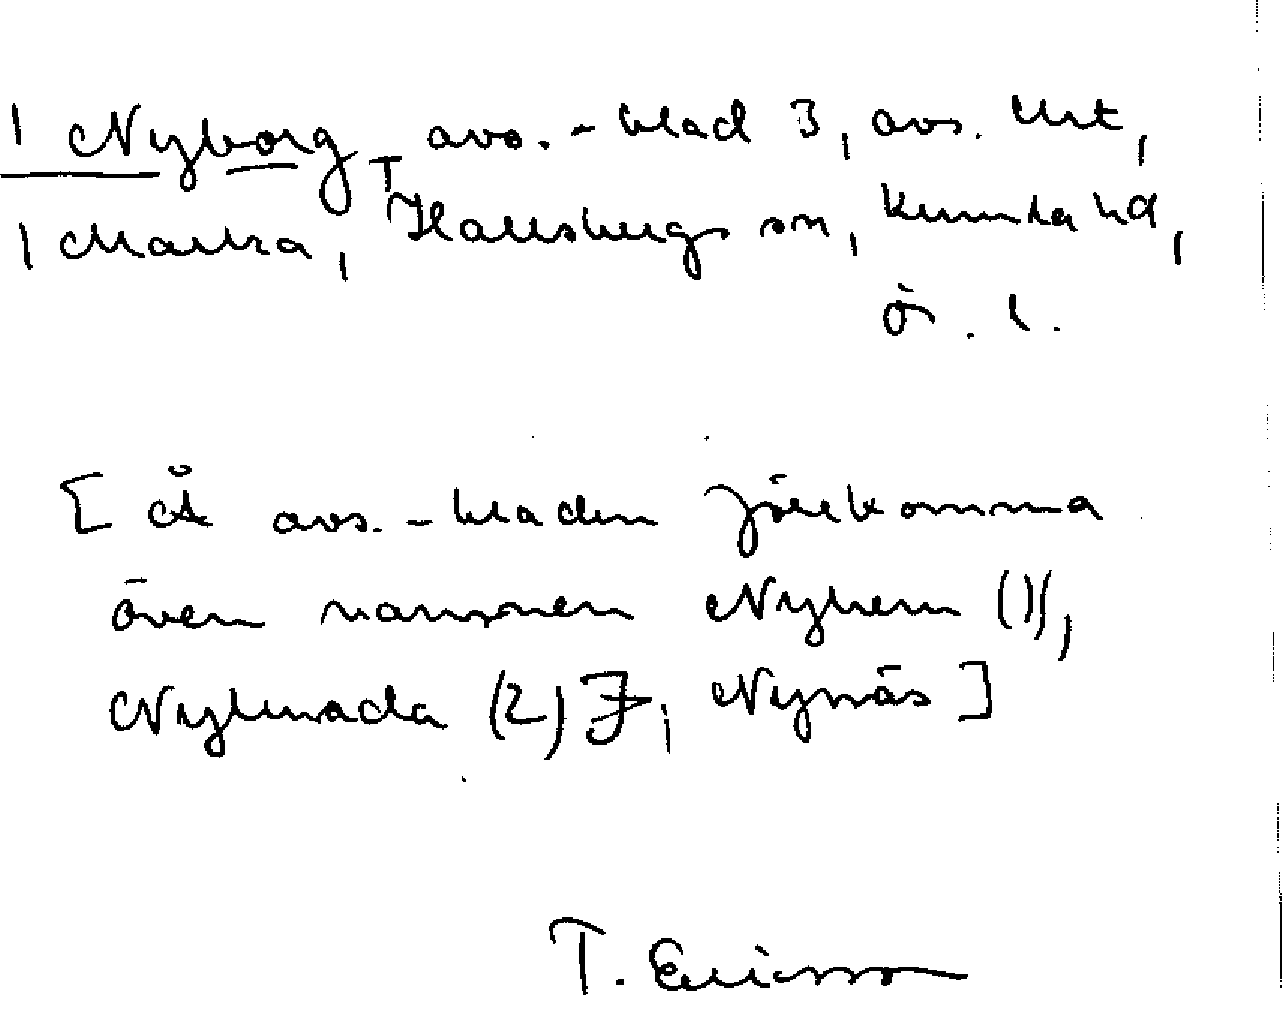 1 Nyborg, avs.-blad 3, avs. urt,
1 Marka, Hallsbergs sn, Kumla hd,
ö. l.
[Å avs.-bladen förekomma
även namnen Nyhem (1),
Nybernada (2), Nynäs]
T. Ericsson